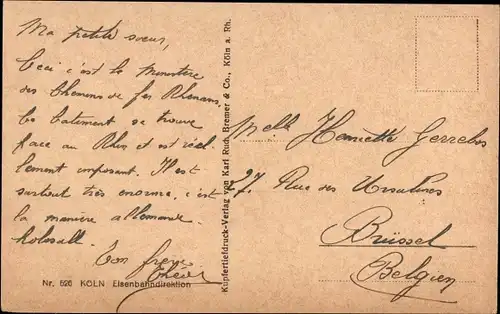 Ma petite soeur,
Ceci c'est le Ministère
des Chemins de fer Rhénans.
Le batiment se trouve
face au Rhin et est réel
lement imposant. Il est
surtout très enorme, c'est
la manière allemande
kolosall.
Ton frère
Nr. 526 KÖLN Eisenbahndirektion
Kupfertiefdruck-Verlag von Karl Rud. Bremer & Co., Köln a. Rh.
Melle Henriette
27. Rue des Ursulines
Brüssel
Belgien